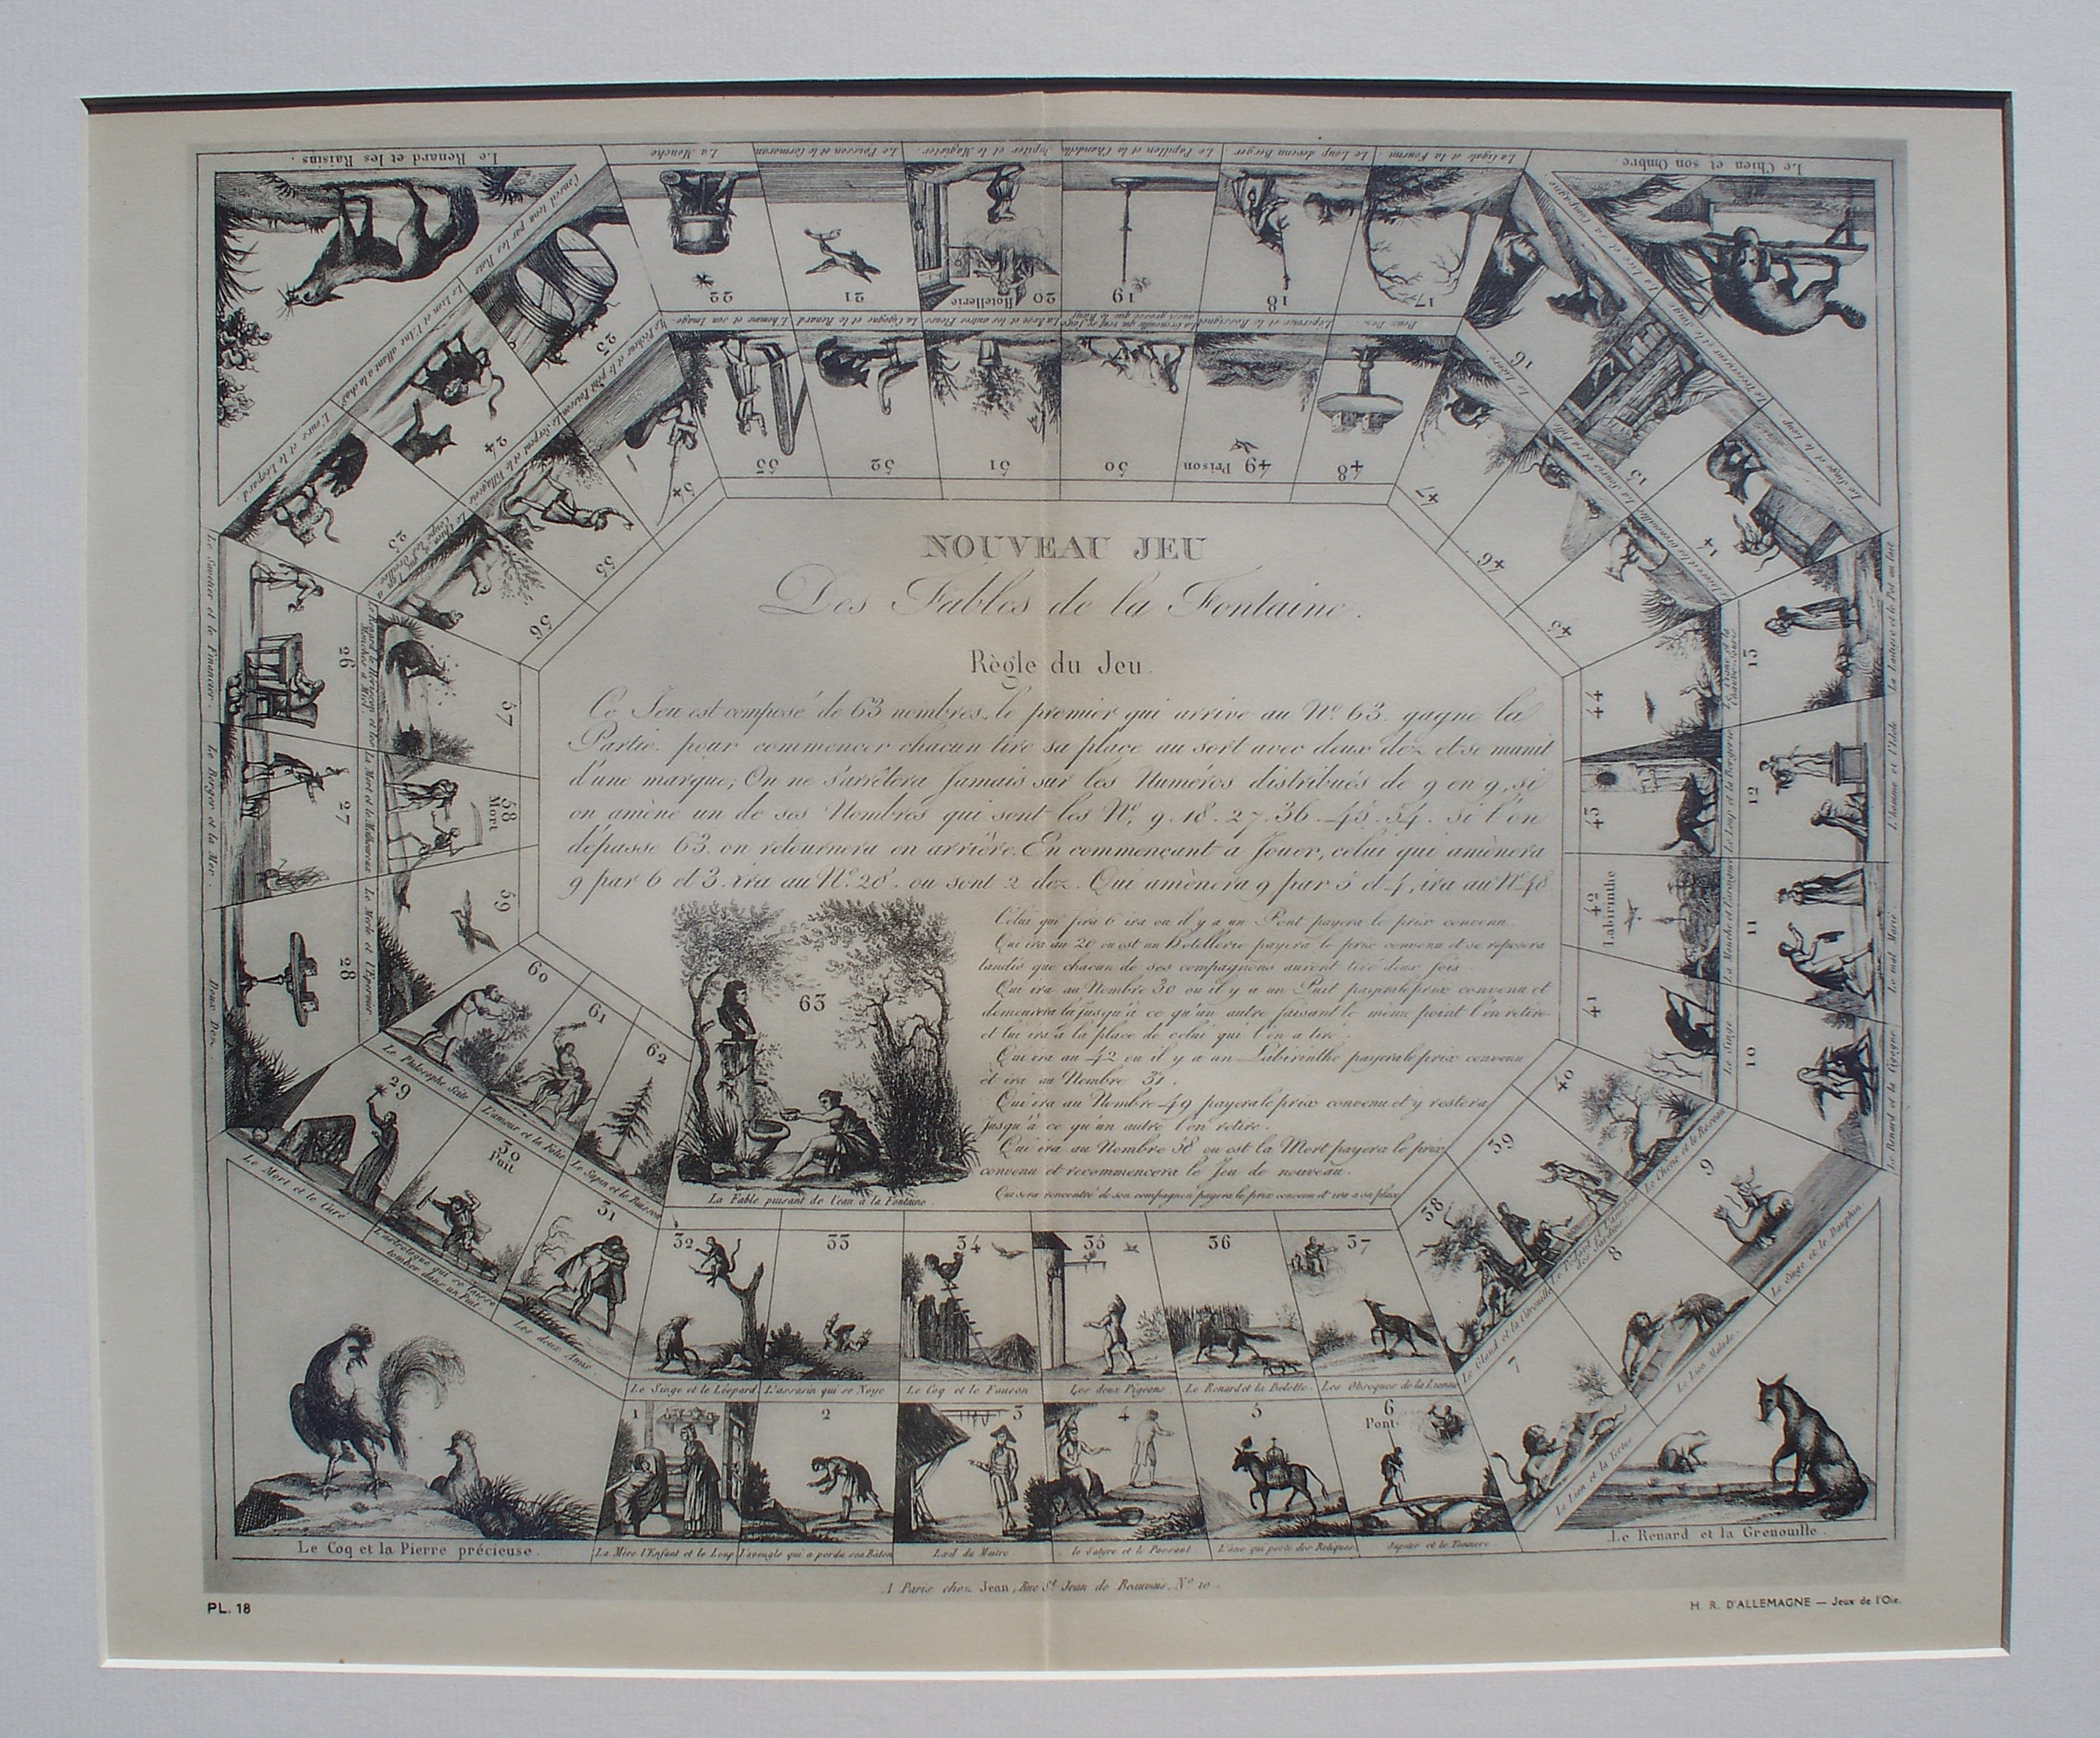 NOUVEAU JEU
Des Fables de la Fontaine.
Règle du Jeu.
Ce Jeu est composé de 63 nombres, le premier qui arrive au N.º 63. gagne la
Partie. pour commencer chacun tire sa place au sort avec deux dez et se munit
d'une marque; On ne s'arrêtera Jamais sur les Numéros distribués de 9 en 9, si
on amène un de ses Nombres qui sont les Nº. 9. 18. 27. 36. 45. 54. si l'on
dépasse 63. on retournera en arrière. En commençant à Jouer, celui qui amènera
9 par 6 et 3. ira au Nº. 28. ou sont 2 dez. Qui amènera 9 par 5 et 4, ira au Nº 48
Celui qui fera 6 ira ou il y a un Pont payera le prix convenu
Qui ira au 20 ou est un Hotellerie payera le prix convenu et se reposera
tandis que chacun de ses compagnons auront tiré deux fois.
Qui ira au Nombre 30 ou il y a un Puit payera le prix convenu et
demeurera là jusqu'à ce qu'un autre faisant le même point l'en retire
et lui ira à la place de celui qui l'en a tiré.
Qui ira au 42 ou il y a un Labirinthe payera le prix convenu
et ira au Nombre 31.
Qui ira au Nombre 49 payera le prix convenu et y restera
Jusqu'à ce qu'un autre l'en retire.
Qui ira au Nombre 58 ou est la Mort payera le prix
convenu et recommencera le Jeu de nouveau.
Qui sera rencontré de son compagnon payera le prix convenu et ira a sa place
63
La Fable puisant de l'eau à la Fontaine.
Le Renard et les Raisins.
Le Chien et son Ombre.
Le Coq et la Pierre précieuse.
Le Renard et la Grenouille.
1
La Mère l'Enfant et le Loup
2
L'aveugle qui a perdu son Bâton
3
L'œil du Maitre
4
le Satyre et le Passant
5
L'âne qui porte des Reliques
6
Pont
Jupiter et le Tonnerre
7
Le Lion et la Tortue
8
Le Lion Malade.
9
Le Singe et le Dauphin.
10
Le Renard et la Cigogne
11
Le mal Marié.
12
L'homme et l'Idole
13
La Laitière et le Pot au lait
14
Le Singe et le Loup.
15
Le trésoreur et le Singe
16
17
La Cigale et la Fourmi
18
Le Loup devenu Berger
19
Le Papillon et la Chandelle
20
Hotellerie
Jupiter et le Magister
21
Le Poisson et le Cormoran
22
La Mouche
23
Conseil tenu par les Rats
24
Le Lion et l'Ane allant à la chasse
25
L'ours et le Léopard.
26
Le Savetier et le Financier.
27
Le Berger et la Mer.
28
Deux Dez.
29
Le Mort et le Curé
30
Puit
L'astrologue qui se laisse tomber dans un Puit
31
Les deux Amis.
32
Le Singe et le Léopard
33
L'assasin qui se Noye
34
Le Coq et le Faucon
35
Les deux Pigeons.
36
Le Renard et la Belette.
37
Les Obseques de la Lionne
38
Le Gland et la Citrouille
39
40
Le Chêne et le Roseau
41
Le Singe
42
Labirinthe
La Mouche et l'araignée
43
Le Loup et la Bergerie
44
45
46
47
Le Lièvre.
48
Deux Dez.
49
Prison
L'épervier et le Rossignol
50
La Grenouille qui veut se faire aussi grosse que le Bœuf
51
La Rose et les autres Fleurs
52
La Cigogne et le Renard
53
L'homme et son Image
54
Le Pêcheur et le petit Poisson
55
Le Serpent et le Villageois
56
57
58
Mort
La Mort et le Malheureux
59
Le Merle et l'Epervier.
60
Le Philosophe Scite
61
L'amour et la Folie
62
Le Sapin et le Buisson
A Paris chez Jean, Rue St Jean de Beauvais, Nº 10.
PL. 18
H. R. D'ALLEMAGNE — Jeux de l'Oie.